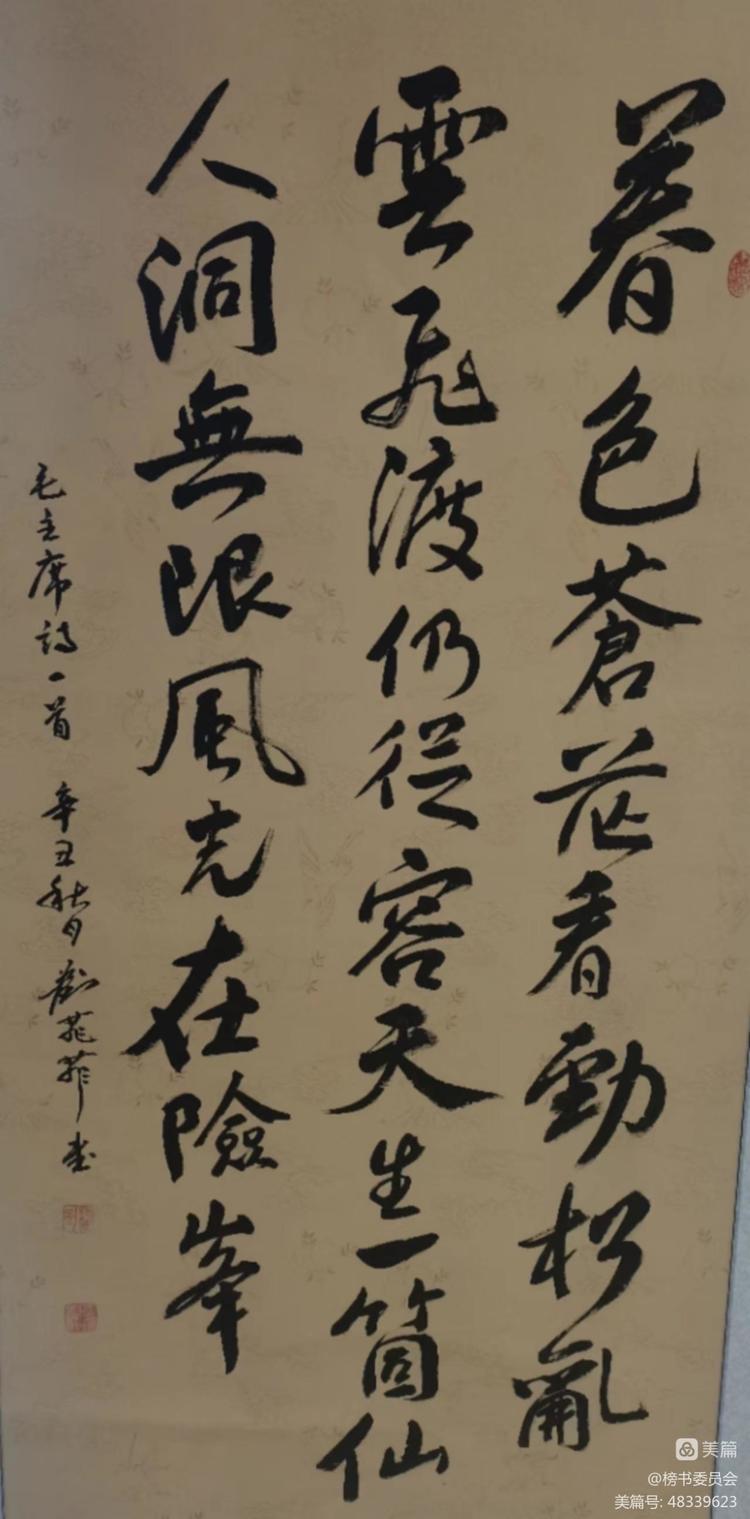 暮色蒼茫看勁松亂
雲飛渡仍從容天生一箇仙
人洞無限風光在險峯
毛主席詩一首 辛丑秋月 劉菲菲 书
美篇
@榜书委员会
美篇号: 48339623